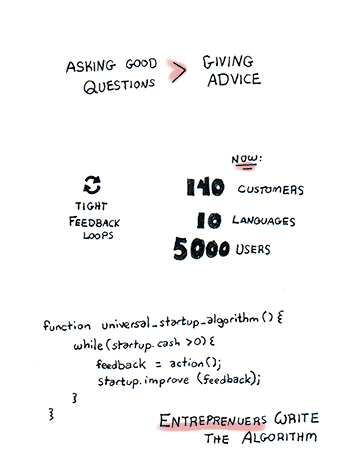 ASKING GOOD
QUESTIONS
>
GIVING
ADVICE
NOW:
140 CUSTOMERS
10 LANGUAGES
5000 USERS
TIGHT
FEEDBACK
LOOPS
function universal_startup_algorithm() {
while(startup.cash >0){
feedback = action();
startup.improve (feedback);
}
}
ENTREPRENUERS WRITE
THE ALGORITHM